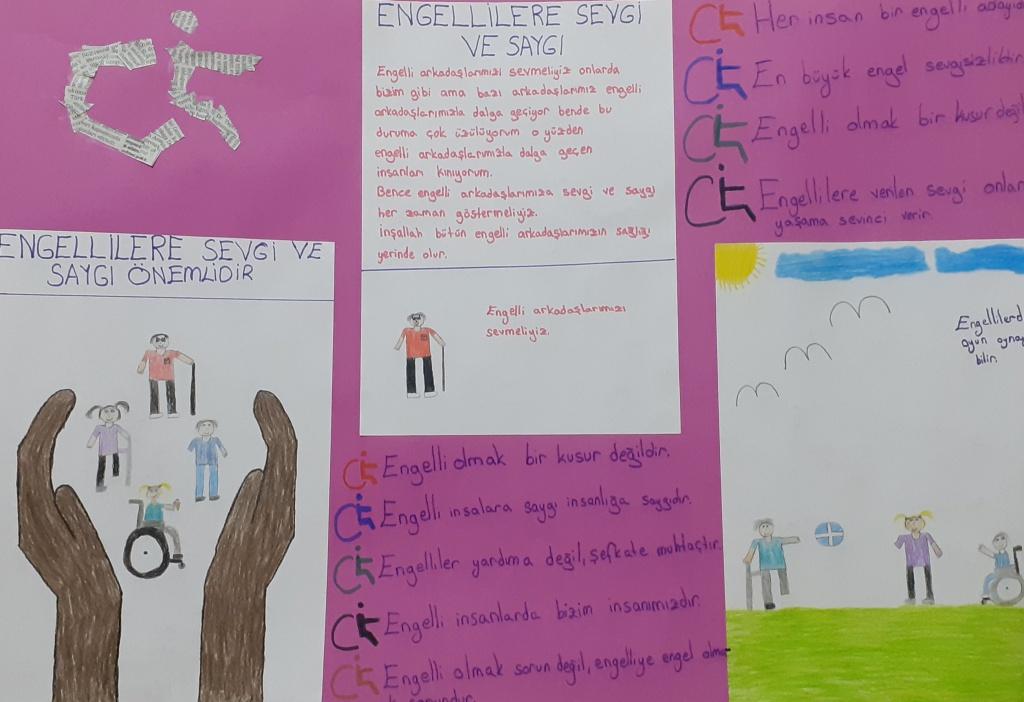 ENGELLİLERE SEVGİ VE
SAYGI ÖNEMLİDİR
ENGELLİLERE SEVGİ
VE SAYGI
Engelli arkadaşlarımızı sevmeliyiz onlarda
bizim gibi ama bazı arkadaşlarımız engelli
arkadaşlarımızla dalga geçiyor bende bu
duruma çok üzülüyorum o yüzden
engelli arkadaşlarımızla dalga geçen
insanları kınıyorum.
Bence engelli arkadaşlarımıza sevgi ve saygı
her zaman göstermeliyiz.
inşallah bütün engelli arkadaşlarımızın sağlığı
yerinde olur.
Engelli arkadaşlarımızı
sevmeliyiz.
Engelli olmak bir kusur değildir.
Engelli insalara saygı insanlığa saygıdır.
Engelliler yardıma değil, şefkate muhtaçtır.
Engelli insanlarda bizim insanımızdır.
Engelli olmak sorun değil, engelliye engel olma
Her insan bir engelli adayıdı
En büyük engel sevgisizliktir.
Engelli olmak bir kusur değil
Engellilere verilen sevgi onlar
yaşama sevinci verir.
Engellilerd
oyun oyna
bilir.